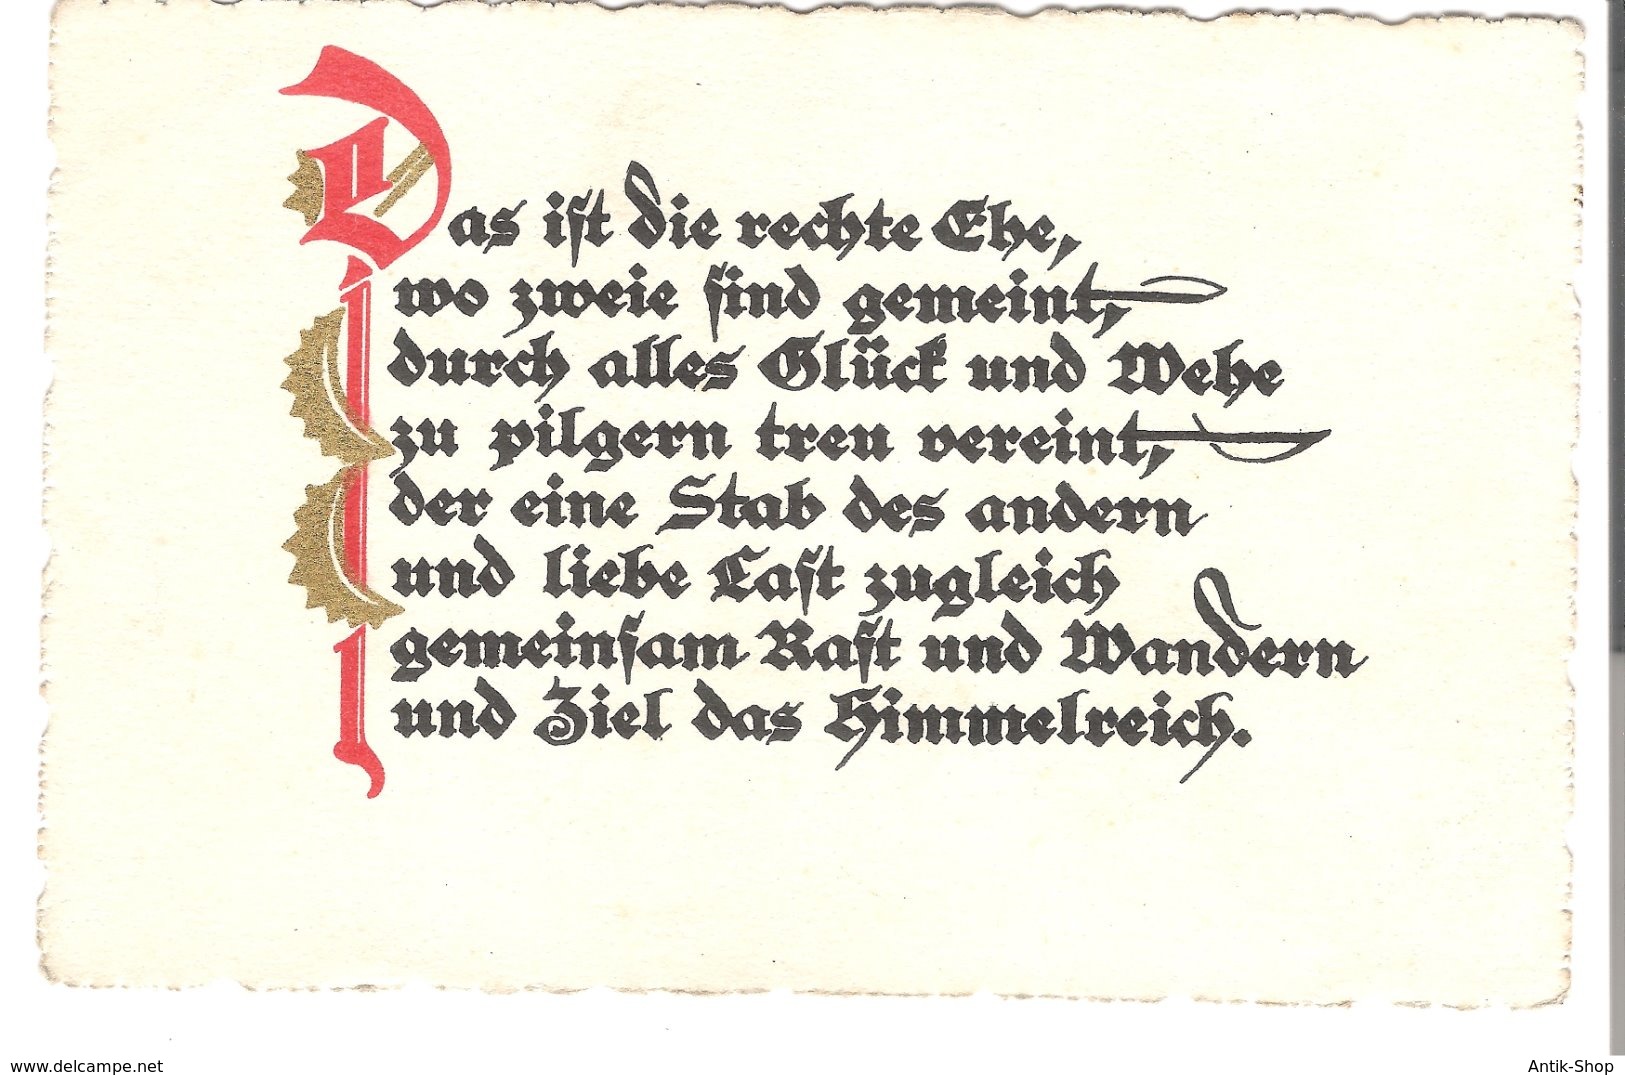 Das ist die rechte Ehe,
wo zweie sind gemeint,
durch alles Glück und Wehe
zu pilgern treu vereint,
der eine Stab des andern
und liebe Last zugleich
gemeinsam Rast und Wandern
und Ziel das Himmelreich.
www.delcampe.net
Antik-Shop